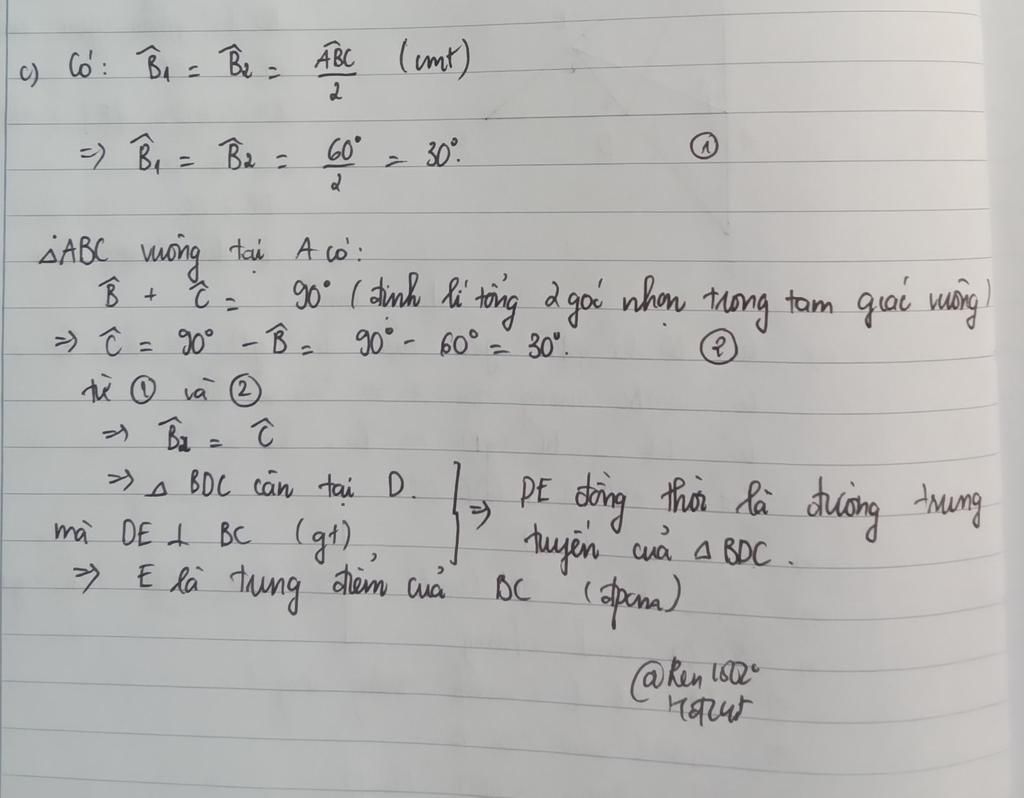 c) Có: B̂₁ = B̂₂ = ÂBC/2 (cmt)
=> B̂₁ = B̂₂ = 60°/2 = 30°. ①
△ABC vuông tại A có:
B̂ + Ĉ = 90° (định lí tổng 2 góc nhọn trong tam giác vuông)
=> Ĉ = 90° - B̂ = 90° - 60° = 30°. ②
từ ① và ②
=> B̂₂ = Ĉ
=> △ BDC cân tại D. } => DE đồng thời là đường trung
mà DE ⊥ BC (gt) tuyến của △ BDC.
=> E là trung điểm của BC (đpcm)